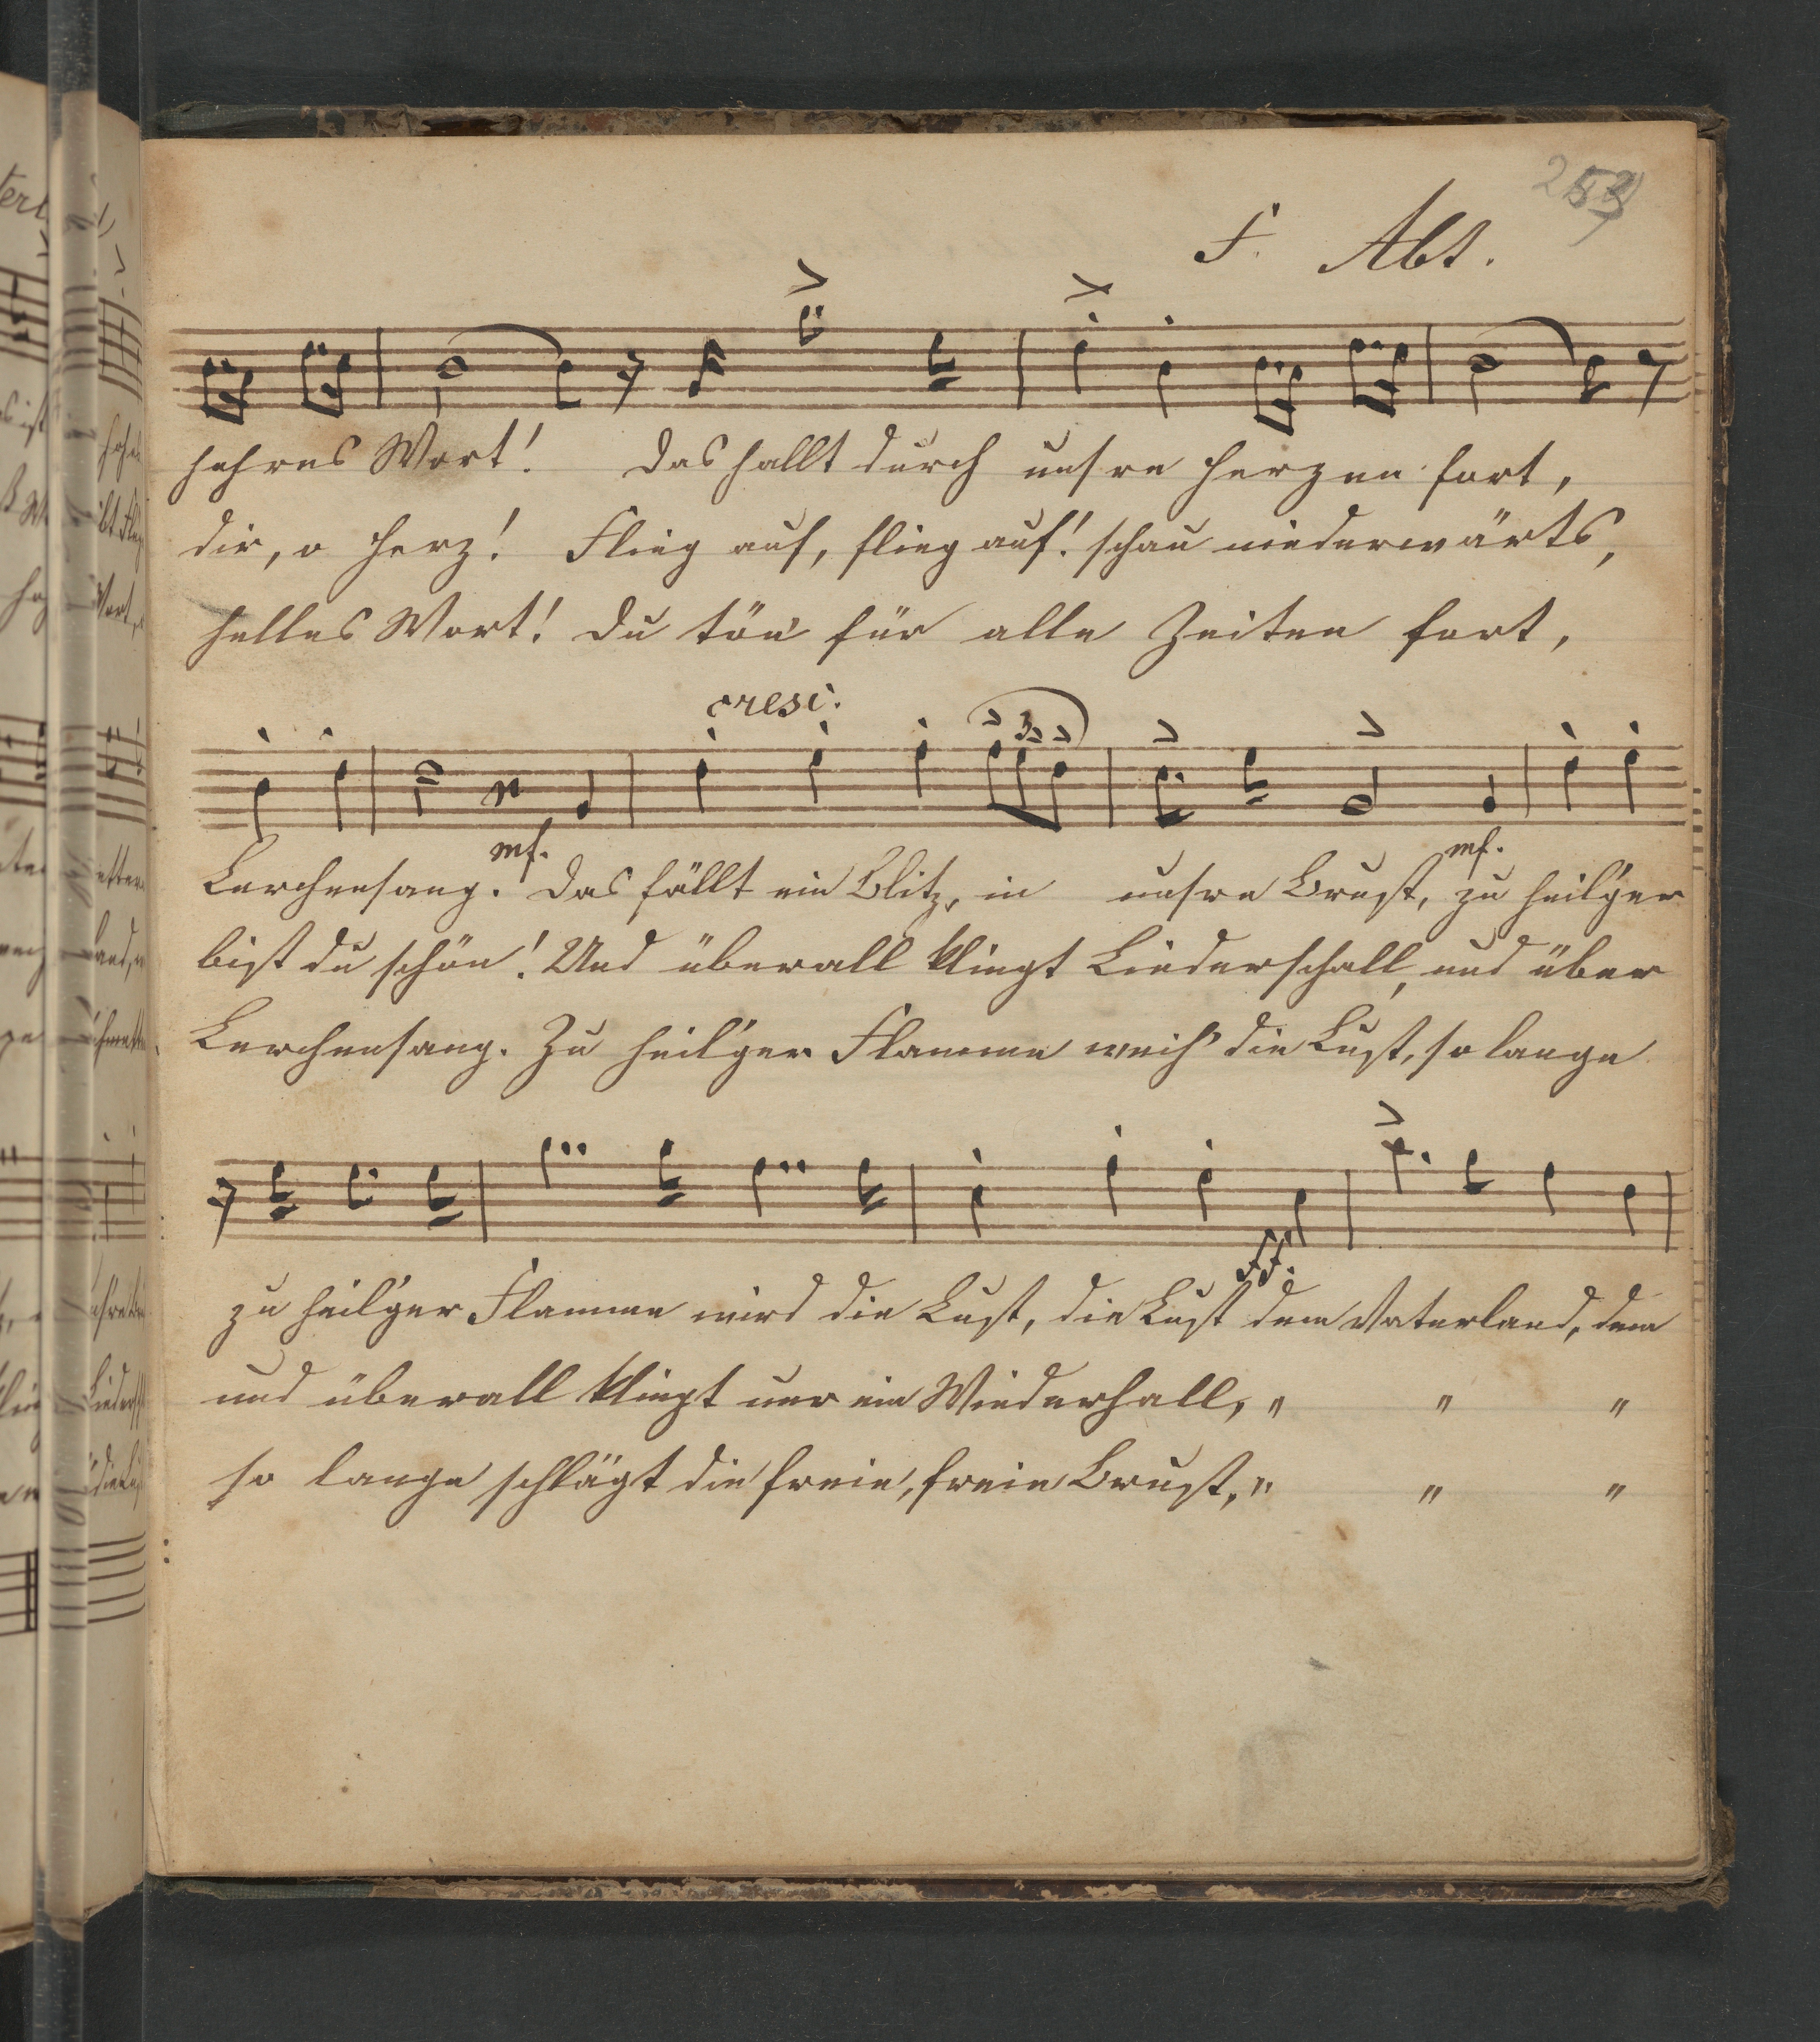 F. Abt.
hehres Wort! Das hallt durch unsre Herzen fort,
dir, o Herz! Flieg auf, flieg auf! schau niederwärts,
helles Wort! Du tön' für alle Zeiten fort,
cresc.
3
mf. mf.
Lerchensang. Das fällt ein Blitz, in unsre Brust, zu heil'ger
bist du schön! Und überall klingt Liederschall, und über
Lerchensang. Zu heil'ger Flamme weih' die Lust, so lange
ff.
zu heil'ger Flamme wird die Lust, die Lust dem Vaterland, dem
und überall klingt nur ein Wiederhall, " " "
so lange schlägt die freie, freie Brust, " " "